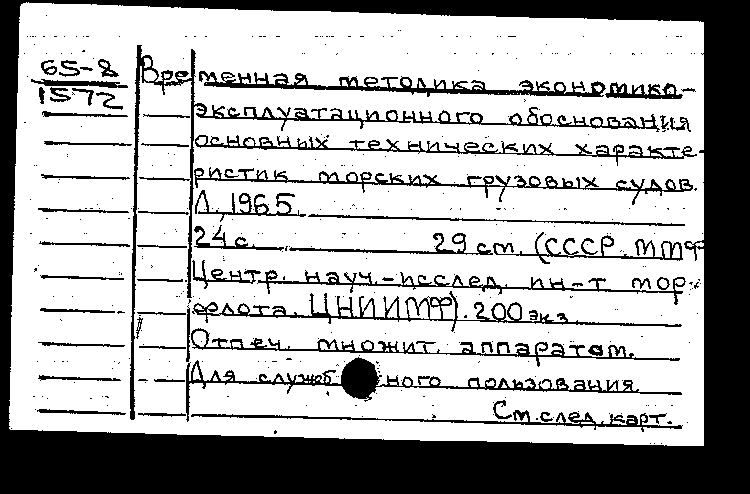 65-8
1572
Временная методика экономико-
эксплуатационного обоснования
основных технических характе-
ристик морских грузовых судов.
Л., 1965.
24 с. 29 см. (СССР. ММФ
Центр. науч.-исслед. ин-т мор.
флота. ЦНИИМФ). 200 экз.
Отпеч. множит. аппаратом.
Для служебного пользования
См. след. карт.